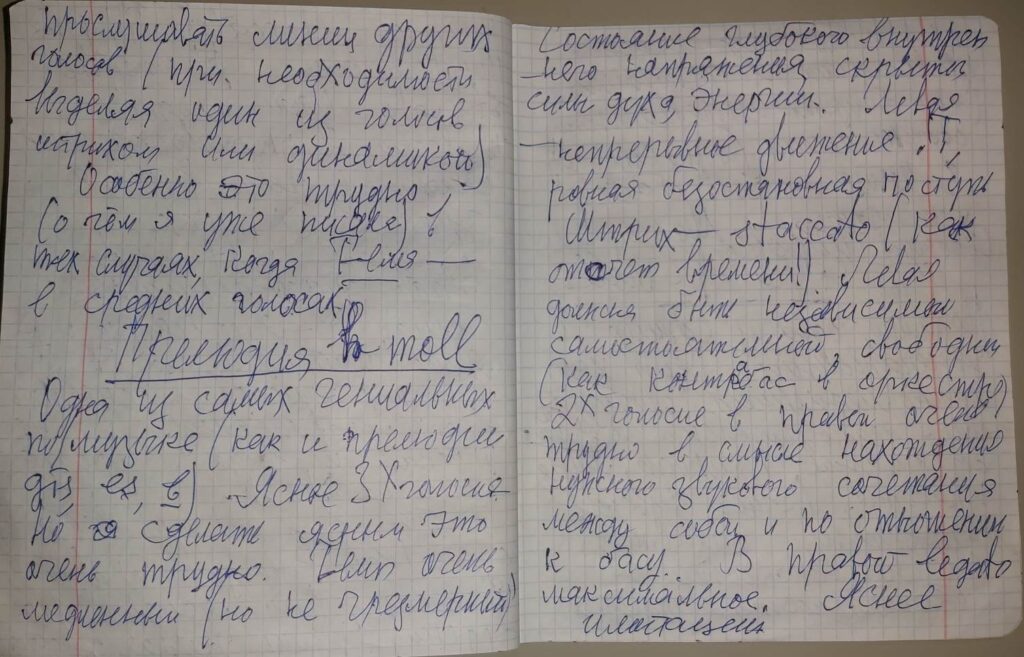 прослушивать линии других
голосов (при необходимости
выделяя один из голосов
штрихом или динамикой)
Особенно это трудно,
(о чём я уже писала) в
тех случаях, когда тема —
в средних голосах.
Прелюдия h moll
Одна из самых гениальных
по музыке (как и прелюдии
es, b) Ясное 3х голосие
Но сделать ясным это
очень трудно. Темп очень
медленный (но не чрезмерный)
Состояние глубокого внутрен
него напряжения, скрытой
силы духа, энергии. Левая
— непрерывное движение
ровная безостановная поступь
Штрих — staccato (как
отсчет времени!). Левая
должна быть независимой
самостоятельной, свободной
(как контрабас в оркестре)
2х голосие в правой очень
трудно в смысле нахождения
нужного звукового сочетания
между собой и по отношению
к басу. В правой legato
максимальное. Яснее
имитации